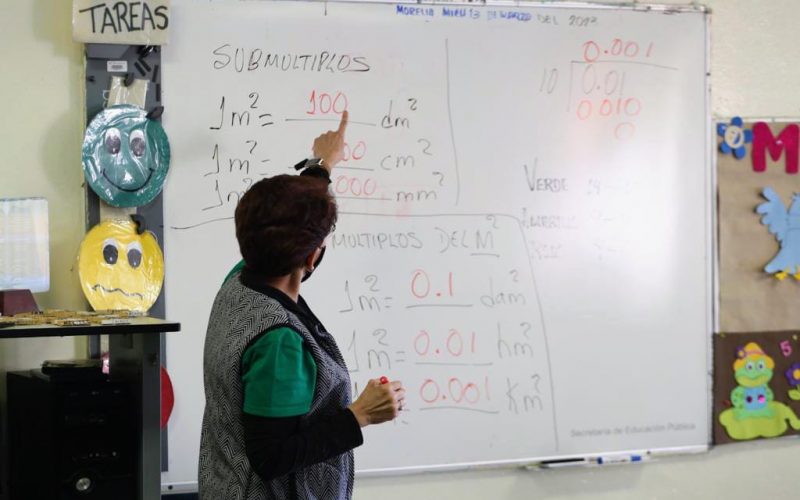 TAREAS
MORELIA MICH DE MARZO DEL
SUBMULTIPLOS
1m² = 100 dm²
1m² = 00 cm²
1m² = 000 mm²
MULTIPLOS DEL M²
1m² = 0.1 dam²
1m² = 0.01 hm²
0.001 Km²
0.001
10 0.01
0010
0
VERDE
M
5
Secretaría de Educación Pública